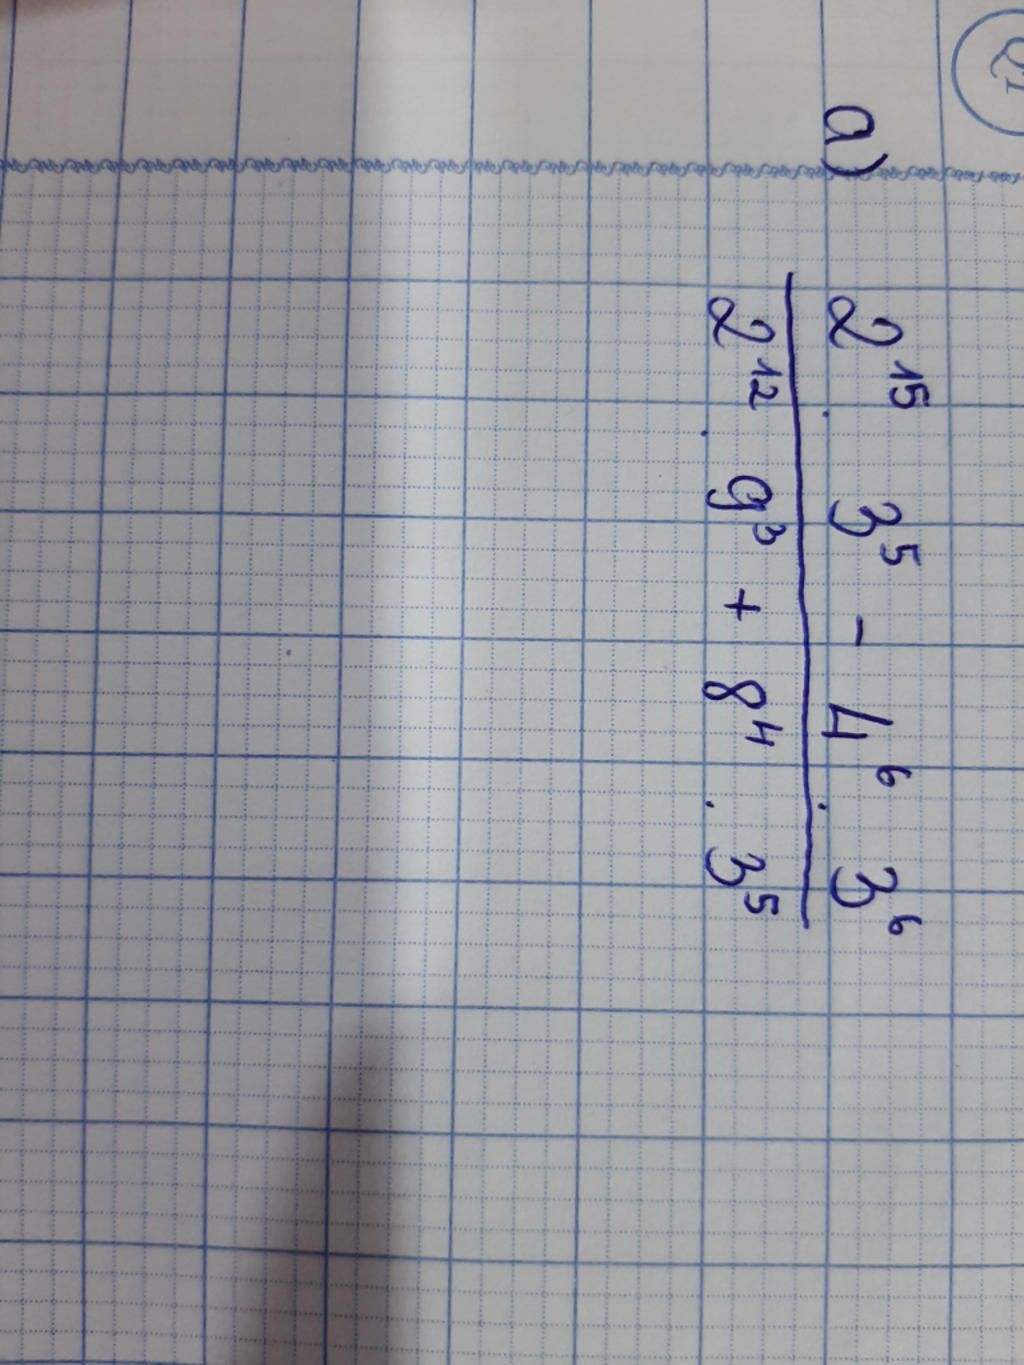 a)
2¹⁵ . 3⁵ - 4⁶ . 3⁶
2¹² . 9³ + 8⁴ . 3⁵